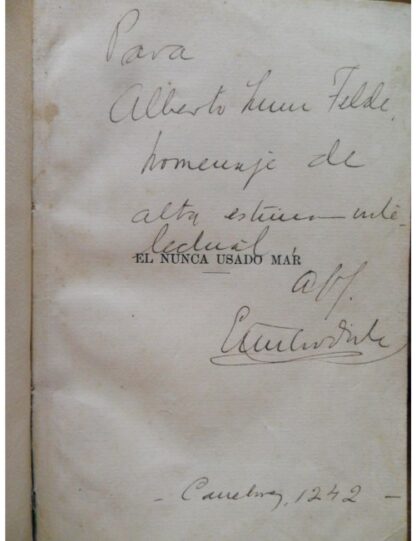 Para
Alberto Zum Felde,
homenaje de
alta estima inte-
lectual,
EL NUNCA USADO MAR
Emilio Oribe
1942 —